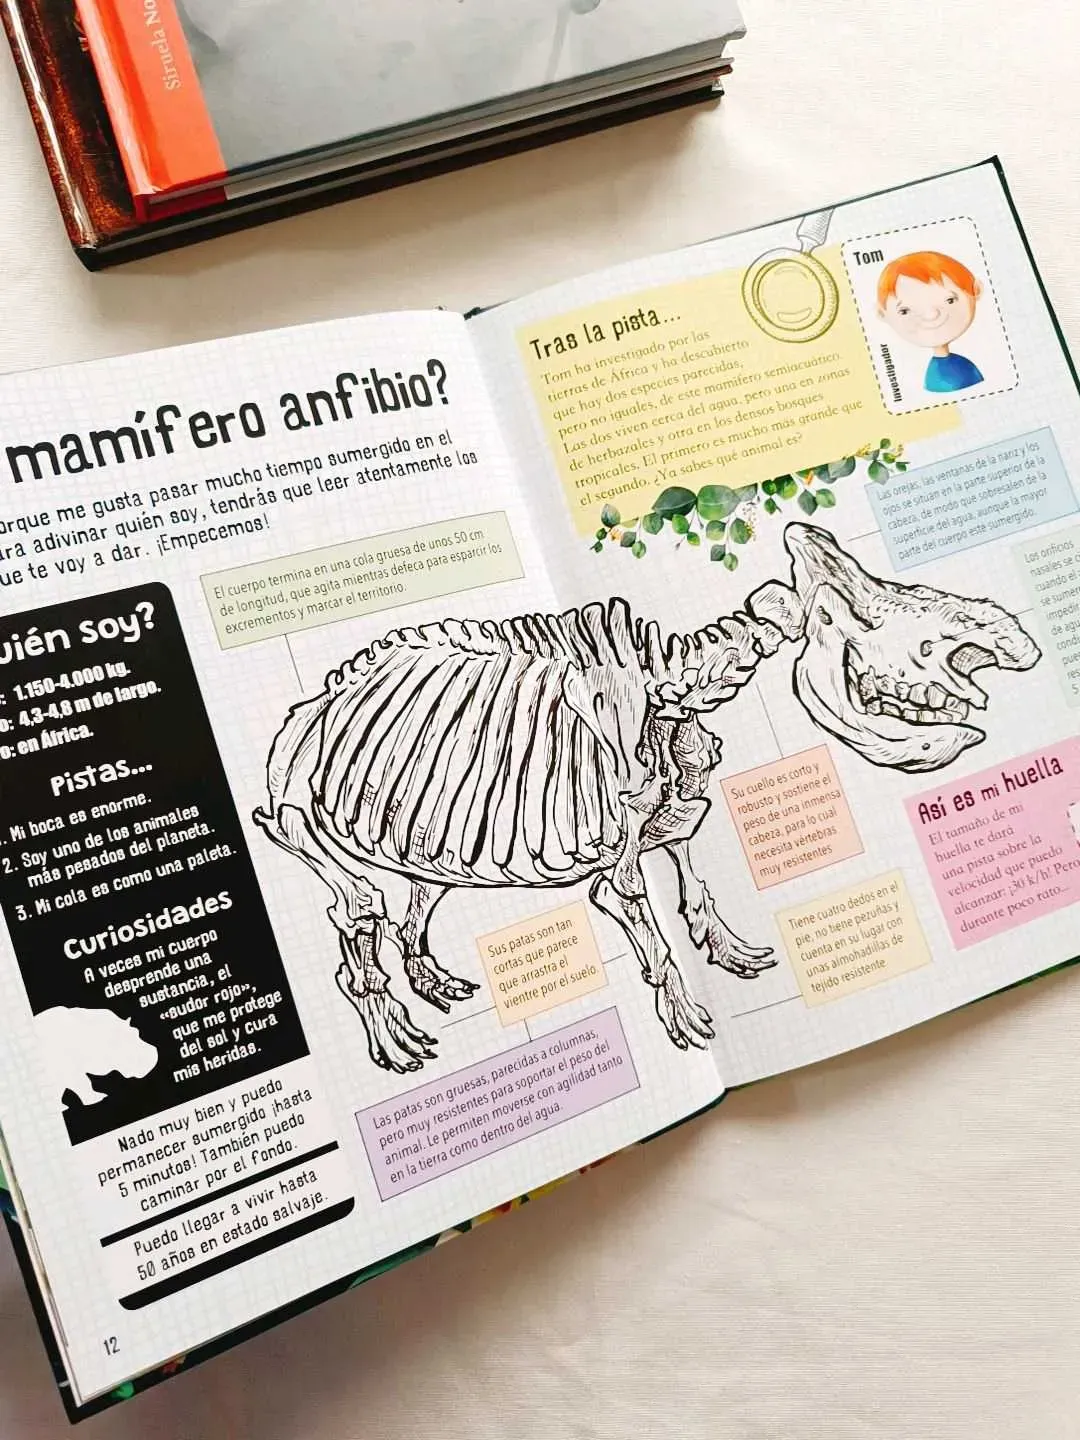 Siruela
mamífero anfibio?
porque me gusta pasar mucho tiempo sumergido en el
para adivinar quién soy, tendrás que leer atentamente las
que te voy a dar. ¡Empecemos!
Quién soy?
1.150-4.000 kg.
4,3-4,8 m de largo.
en África.
Pistas...
1. Mi boca es enorme.
2. Soy uno de los animales
más pesados del planeta.
3. Mi cola es como una paleta.
Curiosidades
A veces mi cuerpo
desprende una
sustancia, el
«sudor rojo»,
que me protege
del sol y cura
mis heridas.
Nado muy bien y puedo
permanecer sumergido ¡hasta
5 minutos! También puedo
caminar por el fondo.
Puedo llegar a vivir hasta
50 años en estado salvaje.
12
El cuerpo termina en una cola gruesa de unos 50 cm
de longitud, que agita mientras defeca para esparcir los
excrementos y marcar el territorio.
Sus patas son tan
cortas que parece
que arrastra el
vientre por el suelo.
Las patas son gruesas, parecidas a columnas,
pero muy resistentes para soportar el peso del
animal. Le permiten moverse con agilidad tanto
en la tierra como dentro del agua.
Tras la pista...
Tom ha investigado por las
tierras de África y ha descubierto
que hay dos especies parecidas,
pero no iguales, de este mamífero semiacuático.
Las dos viven cerca del agua, pero una en zonas
de herbazales y otra en los densos bosques
tropicales. El primero es mucho más grande que
el segundo. ¿Ya sabes qué animal es?
Tom
Investigador
Las orejas, las ventanas de la nariz y los
ojos se sitúan en la parte superior de la
cabeza, de modo que sobresalen de la
superficie del agua, aunque la mayor
parte del cuerpo esté sumergido.
Los orificios
nasales se
cuando el
se
de
5
Su cuello es corto y
robusto y sostiene el
peso de una inmensa
cabeza, para lo cual
necesita vértebras
muy resistentes
Tiene cuatro dedos en el
pie, no tiene pezuñas y
cuenta en su lugar con
unas almohadillas de
tejido resistente
Así es mi huella
El tamaño de mi
huella te dará
una pista sobre la
velocidad que puedo
alcanzar: ¡30 k/h! Pero
durante poco rato...